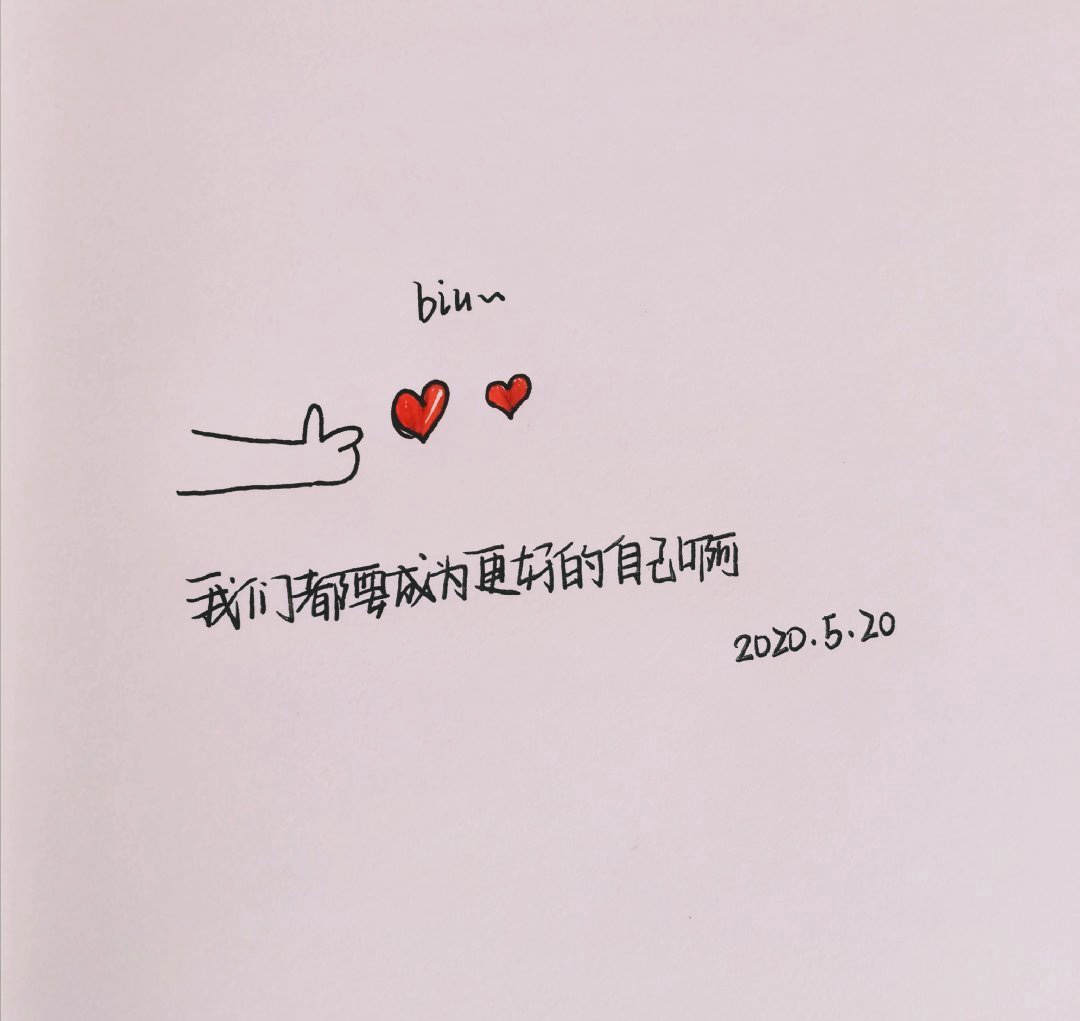 biu~
我们都要成为更好的自己啊
2020.5.20